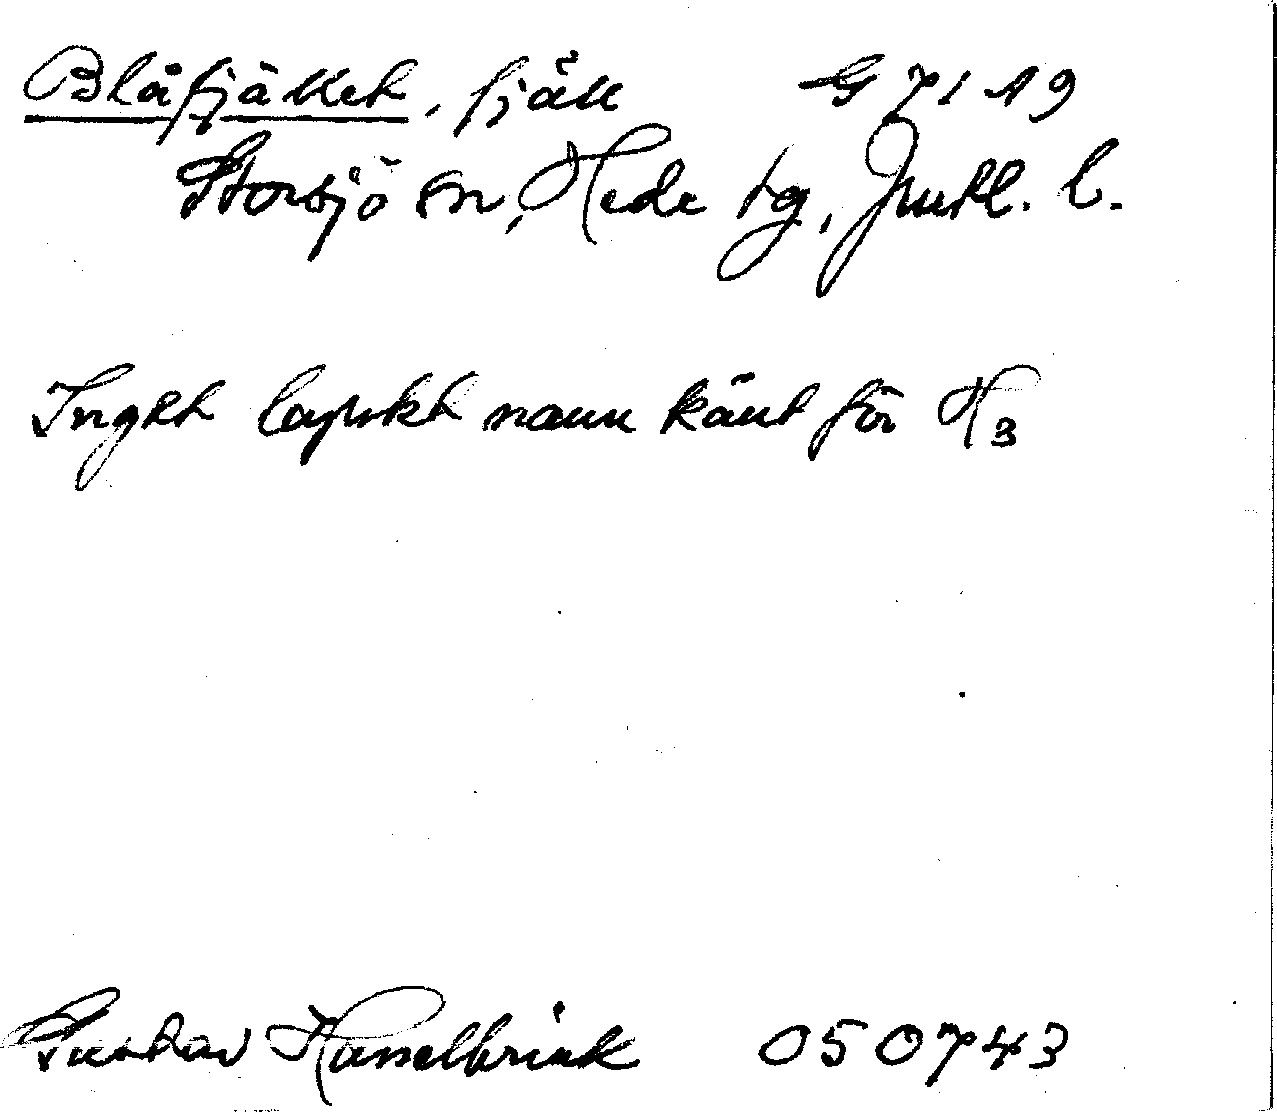 Blåfjället, fjäll G 71 19
Storsjö sn, Hede tg, Jmtl. l.
Inget lapskt namn känt för H3
Gustav Hasselbrink 050743